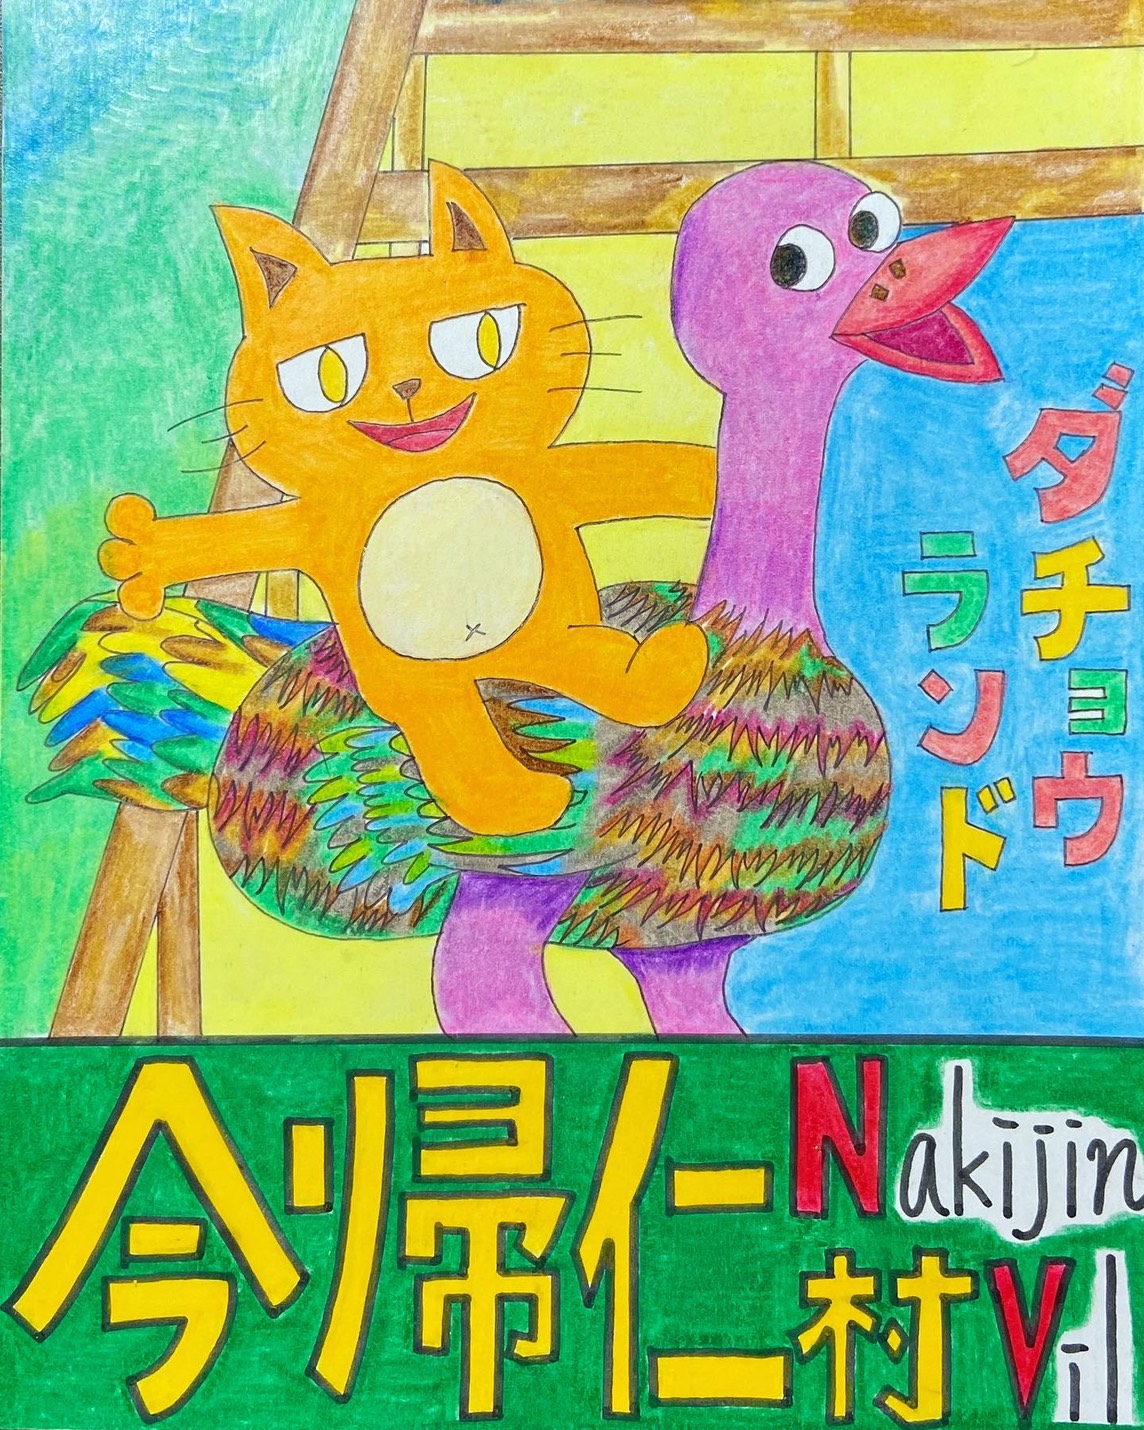 ダチョウ
ランド
今帰仁村
Nakijin
Vil